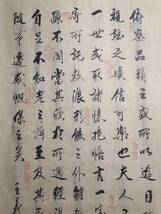 俯察品類之盛所以遊目
視聽之娛信可樂也夫人
一世或取諸懷抱悟言一
寄所託放浪形骸之外雖
躁不同當其欣於所遇
自足不知老之將至及其
事遷感慨係之矣 王羲